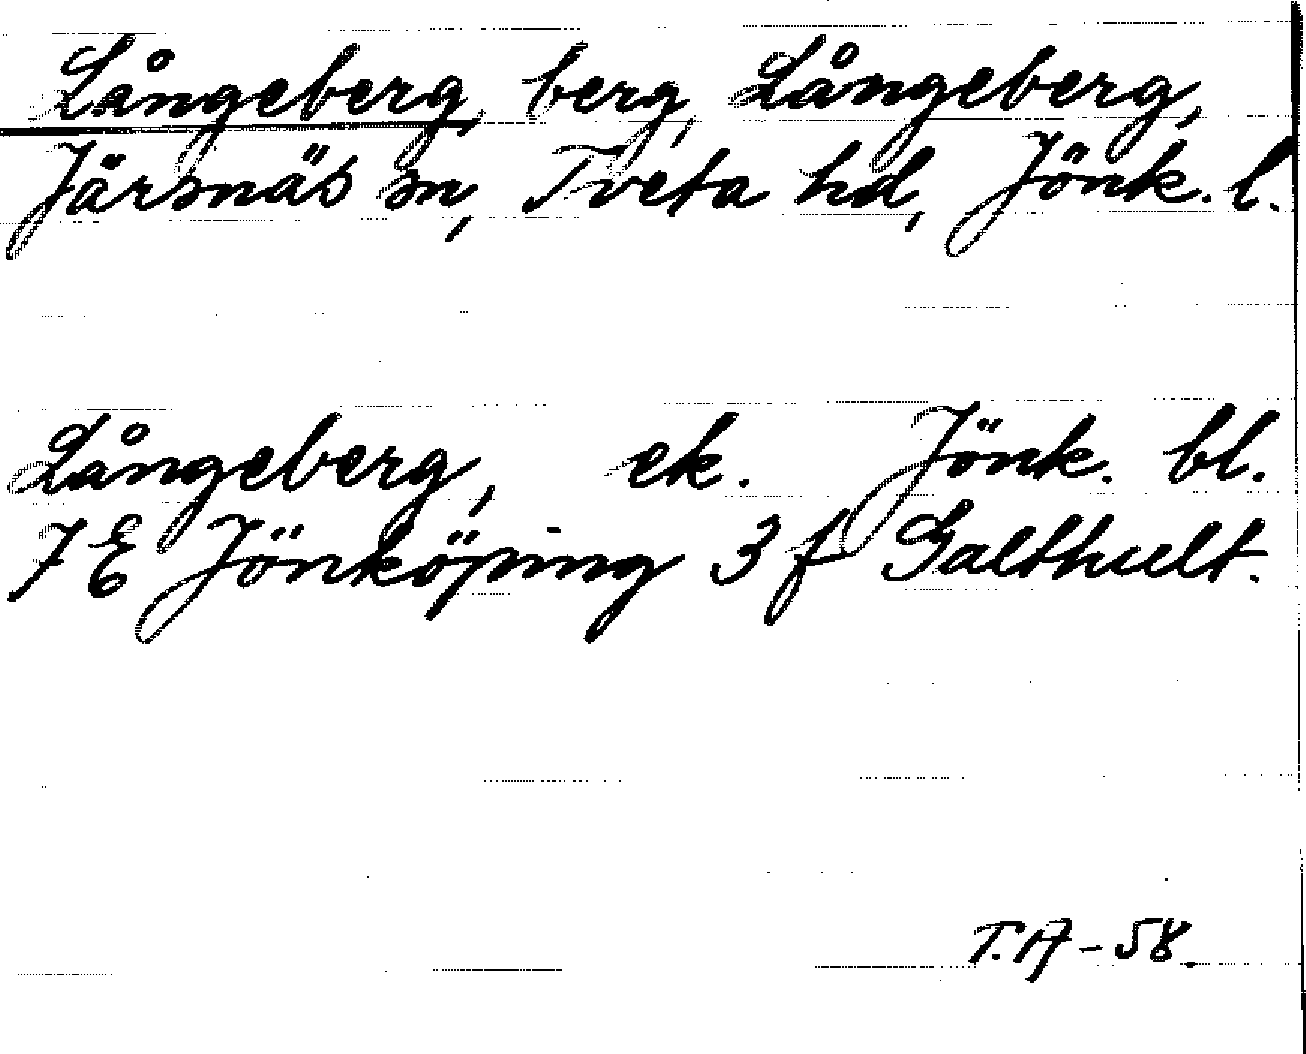 Långeberg, berg, Långeberg,
Järsnäs sn, Tveta hd, Jönk. l.
Långeberg, ek. Jönk. bl.
7 E Jönköping 3 f Galthult.
T.A - 58.